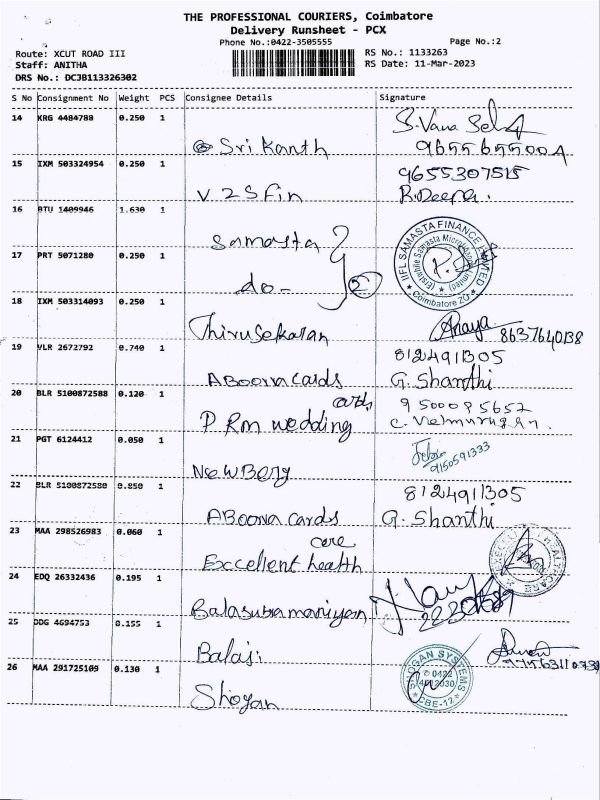 THE PROFESSIONAL COURIERS, Coimbatore
Delivery Runsheet - PCX
Phone No.:0422-3505555
Page No.:2
Route: XCUT ROAD III
RS No.: 1133263
Staff: ANITHA
RS Date: 11-Mar-2023
DRS No.: DCJB113326302
S No Consignment No Weight PCS Consignee Details Signature
14 KRG 4484788 0.250 1
Srikanth
9655655004
15 IXM 503324954 0.250 1
9655307515
V. 2 S Fin R. Deepa.
16 BTU 1409946 1.630 1
Samasta
IIFL SAMASTA FINANCE LIMITED
(Erstwhile Samasta Microfinance Limited)
Coimbatore ZO
17 PRT 5071280 0.250 1
do-
2
18 IXM 503314093 0.250 1
Thirusekaran 8637640138
19 VLR 2672792 0.740 1
8124911305
ABoorva cards G. Shanthi
20 BLR 5100872588 0.120 1
cards
9500095652
P Rm wedding C. Velmurugan.
21 PGT 6124412 0.050 1
9150591333
22 BLR 5100872580 0.850 1
8124911305
ABoorva cards G. Shanthi
23 MAA 298526983 0.060 1
care
Excellent health
24 EDQ 26332436 0.195 1
Balasubramaniyan
25 DDG 4694753 0.155 1
Balaji
26 MAA 291725109 0.130 1
SHOGAN SYSTEMS
CBE-12
Shogan